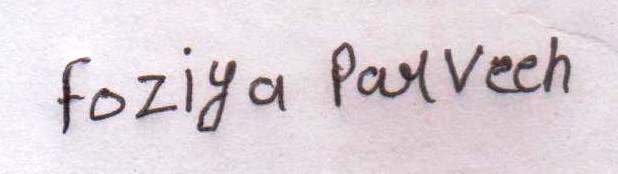 Foziya Parveen